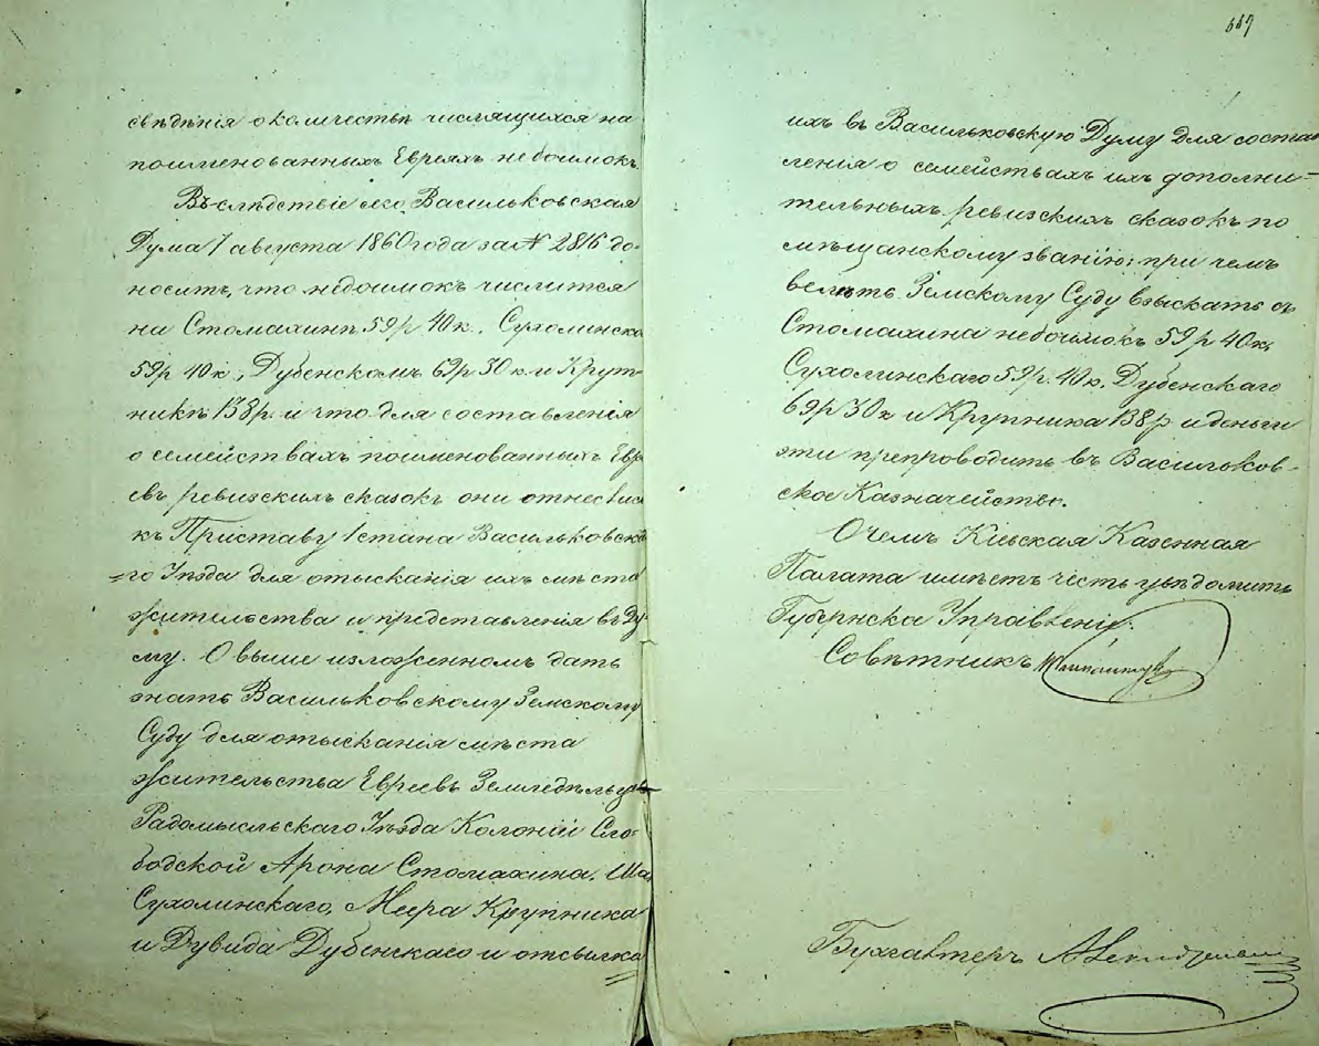 свѣдѣнія о количествѣ числящихся на
поименованныхъ Евреяхъ недоимокъ.
Въ слѣдствіе сего Васильковская
Дума 7 августа 1860 года за № 2816 до-
носитъ, что недоимокъ числится
на Стомахинѣ 59 р 40 к., Сухолинско
59 р 40 к., Дубенскомъ 69 р 30 к. и Круп-
никѣ 138 р. и что для составленія
о семействахъ поименованныхъ Евре
евъ ревизскихъ сказокъ они отнеслись
къ Приставу 1 стана Васильковска
го Уѣзда для отысканія ихъ мѣста
жительства и представленія въ Ду-
му. О выше изложенномъ дать
знать Васильковскому Земскому
Суду для отысканія мѣста
жительства Евреевъ Земледѣльцевъ
Радомысльскаго Уѣзда Колоніи Сло-
бодской Арона Стомахина,
Сухолинскаго, Меера Крупника
и Дувида Дубенскаго и отсылка
667
ихъ въ Васильковскую Думу для состав
ленія о семействахъ ихъ дополни-
тельныхъ ревизскихъ сказокъ по
мѣщанскому званію; при чемъ
велѣть Земскому Суду взыскать съ
Стомахина недоимокъ 59 р 40 к,
Сухолинскаго 59 р. 40 к. Дубенскаго
69 р 30 к и Крупника 138 р и деньги
эти препроводить въ Васильков-
ское Казначейство.
О чемъ Кіевская Казенная
Палата имѣетъ честь увѣдомить
Губернска Управленіе.
Совѣтникъ
Бухгалтеръ